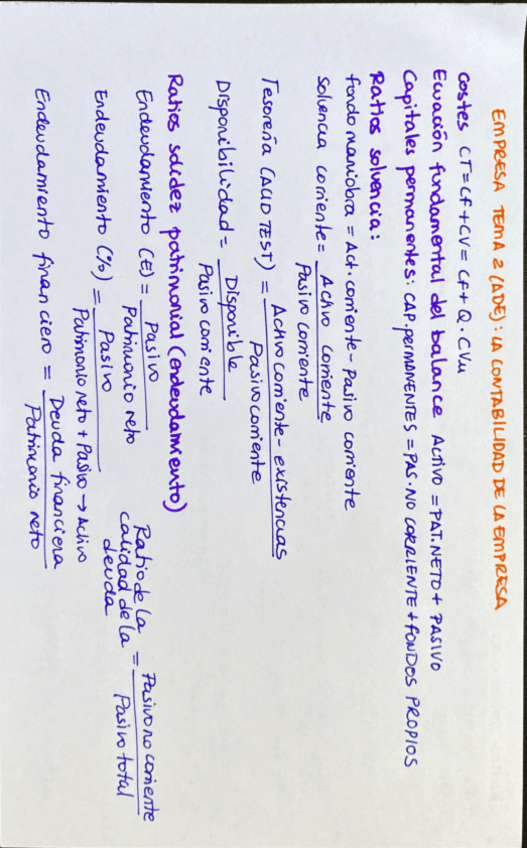 EMPRESA TEMA 2 (ADE): LA CONTABILIDAD DE LA EMPRESA
Costes CT = CF + CV = CF + Q · CVu
Ecuación fundamental del balance ACTIVO = PAT.NETO + PASIVO
Capitales permanentes: CAP.PERMANENTES = PAS. NO CORRIENTE + FONDOS PROPIOS
Ratios solvencia:
fondo maniobra = Act. corriente - Pasivo corriente
Solvencia corriente = Activo corriente
Pasivo corriente
Tesorería (ACID TEST) = Activo corriente - existencias
Pasivo corriente
Disponibilidad = Disponible
Pasivo corriente
Ratios solidez patrimonial (endeudamiento)
Endeudamiento (€) = Pasivo
Patrimonio neto
Endeudamiento (%) = Pasivo
Patrimonio neto + Pasivo → Activo
Endeudamiento financiero = Deuda financiera
Patrimonio neto
Ratio de la
calidad de la = Pasivo no corriente
deuda Pasivo total